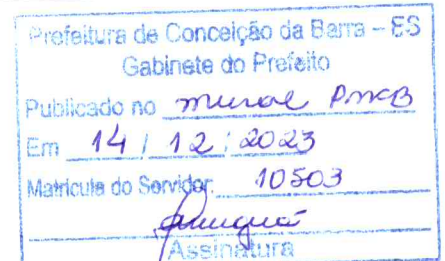 Prefeitura de Conceição da Barra – ES
Gabinete do Prefeito
Publicado no mural PMCB
Em 14 / 12 / 2023
Matrícula do Servidor: 10503
Assinatura